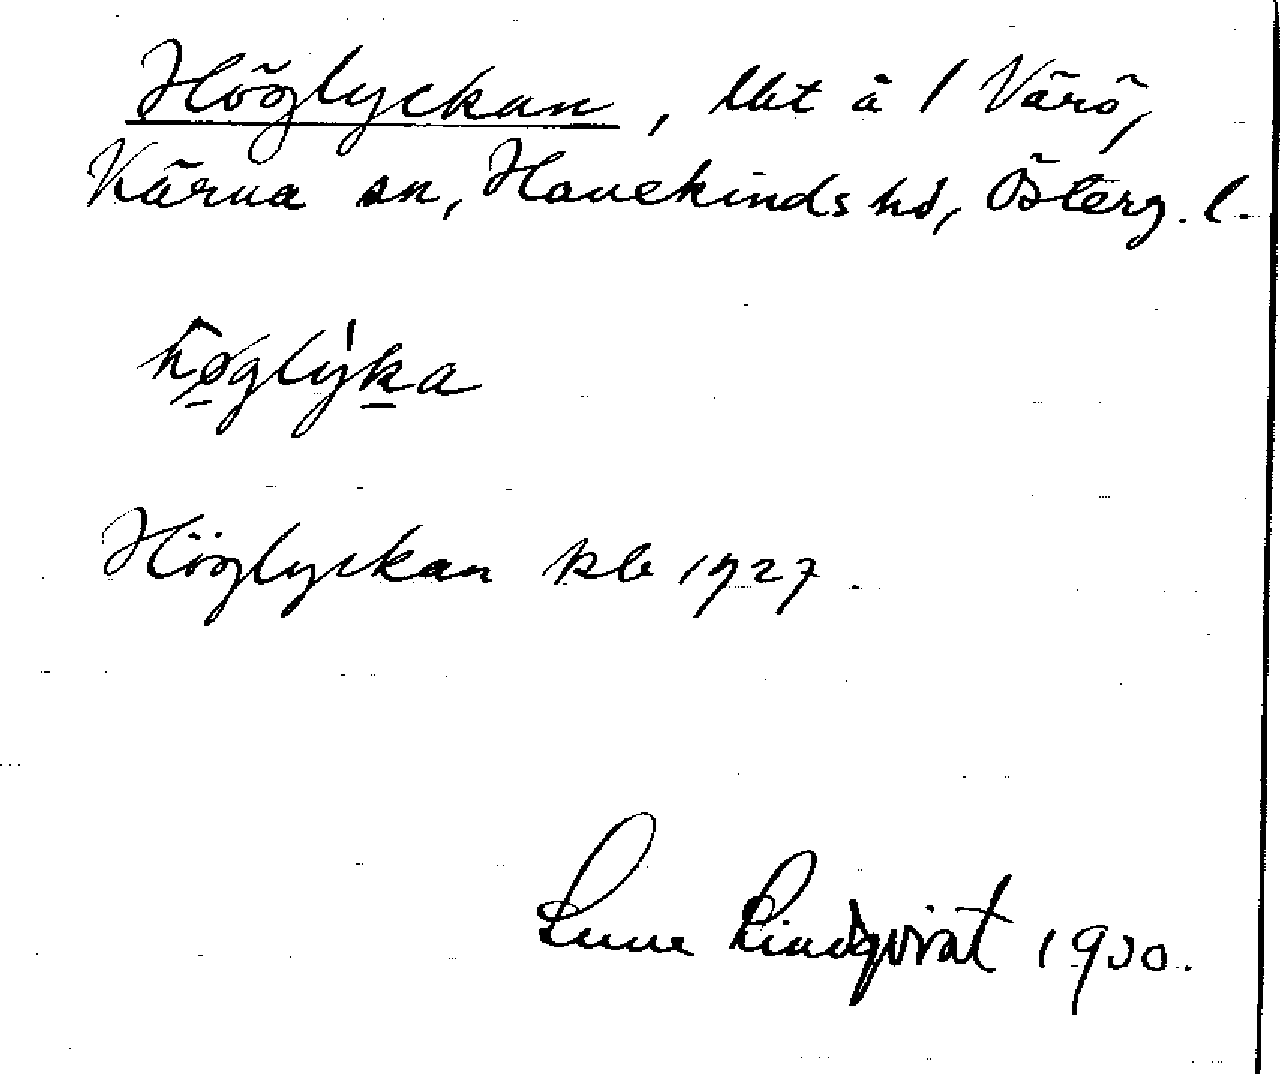 Höglyckan, lht å 1 Värö,
Kärna sn, Hanekinds hd, Österg. l.
høglyka
Höglyckan kb 1927.
Sune Lindqvist 1930.